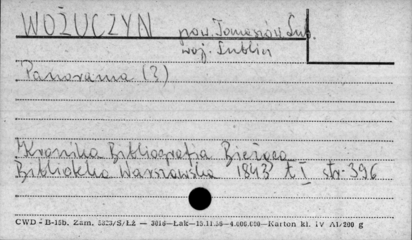 WOŻUCZYN pow. Tomaszów Lub.
woj. Lublin
Panorama (3)
Kronika Bibliografia Bieżąca
Biblioteka Warszawska 1843 t. I str. 396
CWD - B-15b. Zam. 5823/S/Łż — 3016—Łak—15.11.56—4.000.000—Karton kl. IV A1/200 g